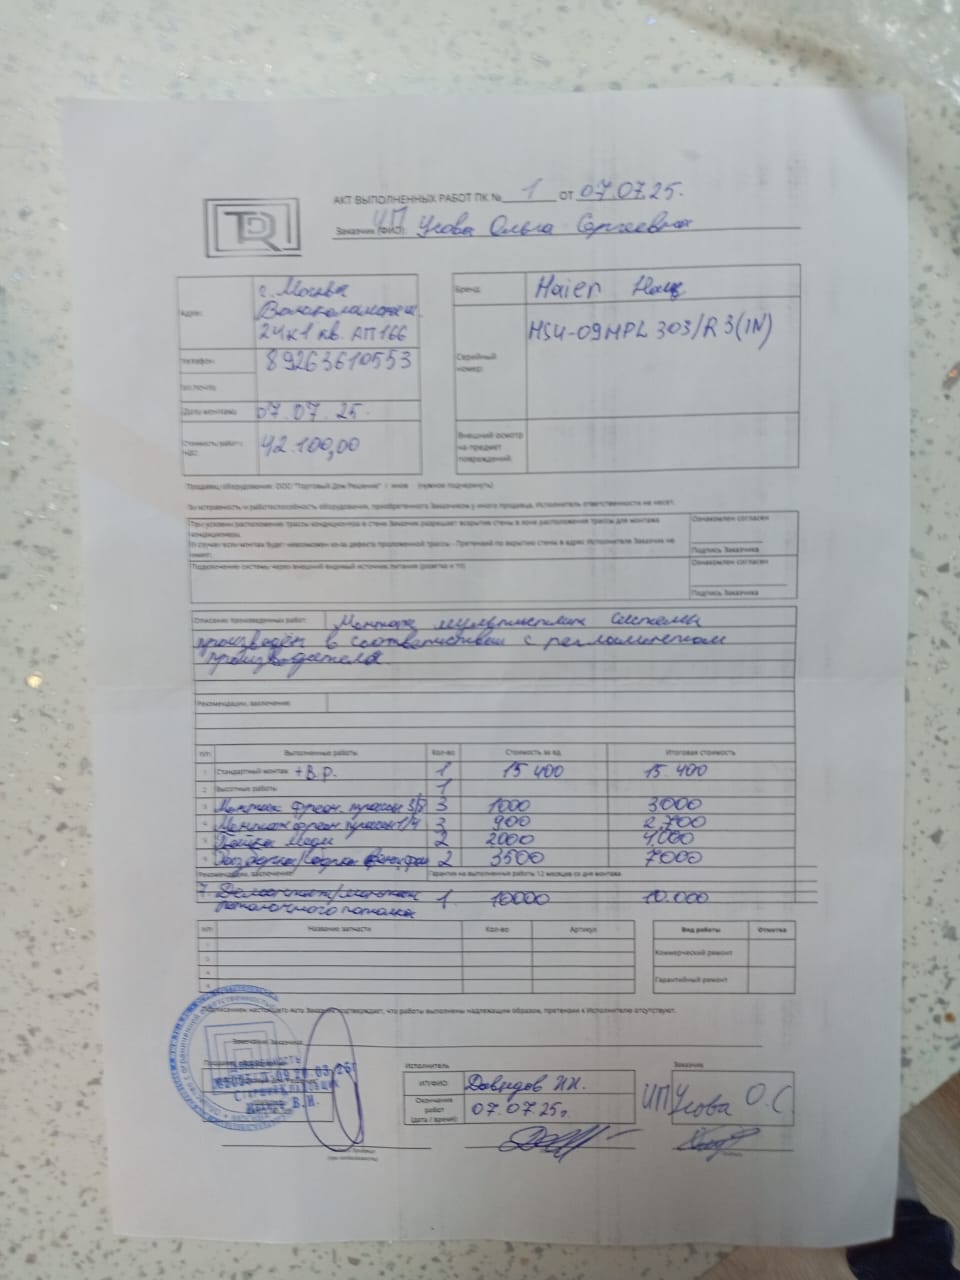 АКТ ВЫПОЛНЕННЫХ РАБОТ ПК № 1 ОТ 07.07.25.
TDR
Заказчик (ФИО): ИП Усова Ольга Сергеевна
Адрес: г. Москва
24к1 кв. АП166
Телефон 89263610553
Эл.почта
Дата монтажа 07.07.25.
Стоимость работ с НДС: 42.100,00
Бренд: Haier
Серийный номер: HSU-09HPL303/R3(IN)
Внешний осмотр на предмет повреждений:
Продавец оборудования: ООО "Торговый Дом Решение" / иное (нужное подчеркнуть)
За исправность и работоспособность оборудования, приобретенного Заказчиком у иного продавца, Исполнитель ответственности не несет.
При условии расположения трассы кондиционера в стене Заказчик разрешает вскрытие стены в зоне расположения трассы для монтажа кондиционера.
В случае если монтаж будет невозможен из-за дефекта проложенной трассы - Претензий по вскрытию стены в адрес Исполнителя Заказчик не имеет.
Ознакомлен согласен
Подпись Заказчика
Подключение системы через внешний видимый источник питания (розетка и тп)
Ознакомлен согласен
Подпись Заказчика
Описание произведенных работ: Монтаж мультисплит системы
произведён в соответствии с регламентом
производителя
Рекомендации, заключение:
П/П Выполненные работы Кол-во Стоимость за ед. Итоговая стоимость
1 Стандартный монтаж + В.Р. 1 15 400 15 400
2 Высотные работы 1
3 Монтаж фреон. трассы 3/8 3 1000 3000
4 Монтаж фреон. трассы 1/4 3 900 2.700
5 Пайка меди 2 2000 4.000
6 2 3500 7000
Рекомендации, заключение: Гарантия на выполненные работы 12 месяцев со дня монтажа
7 Демонтаж/монтаж
потолочного потолка 1 10000 10.000
П/П Название запчасти Кол-во Артикул
Вид работы Отметка
Коммерческий ремонт
Гарантийный ремонт
Подписанием настоящего Акта Заказчик подтверждает, что работы выполнены надлежащим образом, претензии к Исполнителю отсутствуют.
Замечания Заказчика:
Исполнитель
ИП/ФИО Давыдов И.И.
Окончание работ (дата / время) 07.07.25г.
Заказчик
ИП Усова О.С